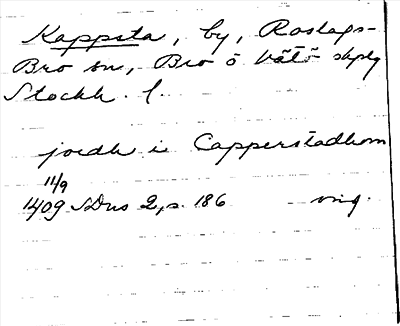 Kappsta, by, Roslags-
Bro sn, Bro o Vätö skplg
Stockh. l.
jordh i Capperstadhom
11/9
1409 SDns 2, s. 186 orig.